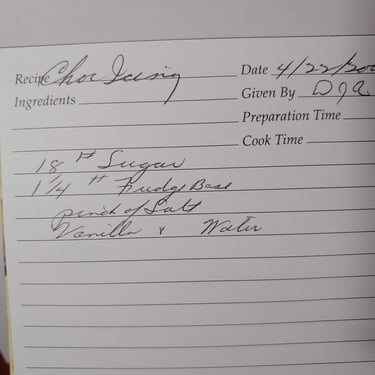 Recipe Choc Icing Date 4/22/200
Ingredients Given By DJR
Preparation Time
Cook Time
18 # Sugar
1 1/4 # Fudge Base
pinch of Salt
Vanilla & Water